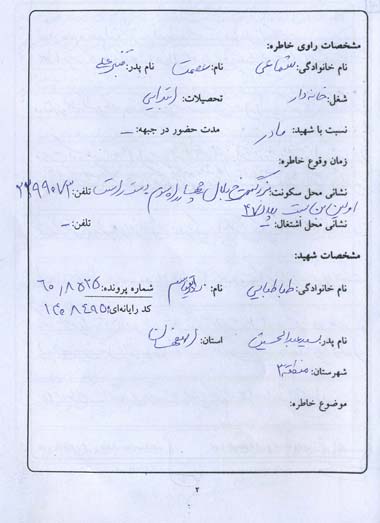 مشخصات راوی خاطره:
نام خانوادگی: شماعی نام: عصمت نام پدر: قنبرعلی
شغل: خانه دار تحصیلات: ابتدایی
نسبت با شهید: مادر مدت حضور در جبهه: –
زمان وقوع خاطره:
نشانی محل سکونت: بزرگمهر خ بلال چهارراه دوم دست راست تلفن:
اولین بن بست پلاک ۴۷
نشانی محل اشتغال: – تلفن: –
مشخصات شهید:
نام خانوادگی: طباطبایی نام: شماره پرونده: ۶۰/۸۵۲۵
کد رایانه‌ای:
نام پدر: سیدعبدالحسین استان: اصفهان
شهرستان: منطقه ۳
موضوع خاطره:
۲